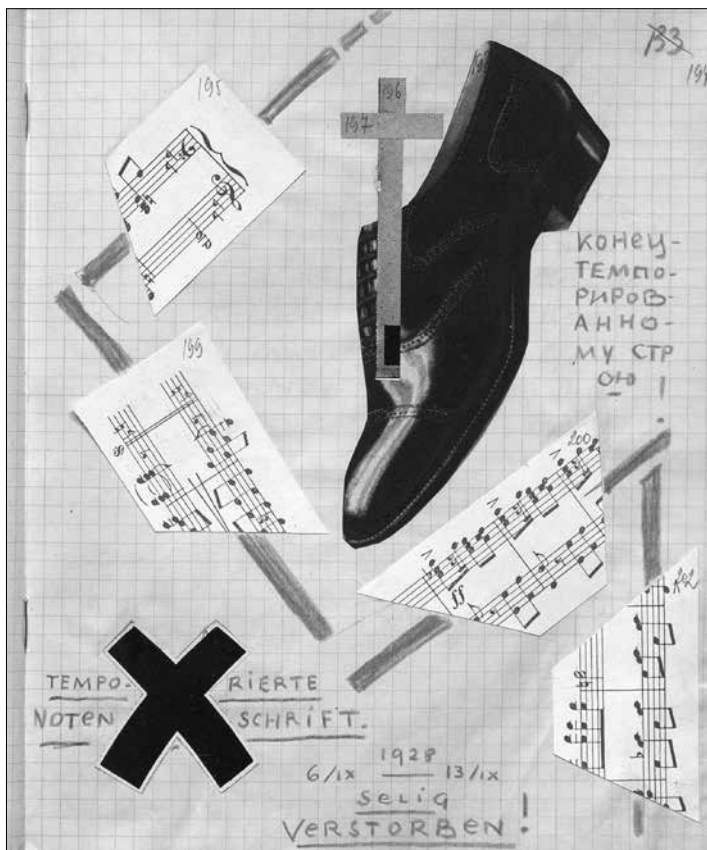 133
195
196
197
КОНЕЦ-
ТЕМПО-
РИРОВ-
АННО-
МУ СТР
ОЮ !
199
200
ff
202
TEMPO- RIERTE
NOTEN SCHRIFT.
6/IX 1928 13/IX
SELIG
VERSTORBEN !